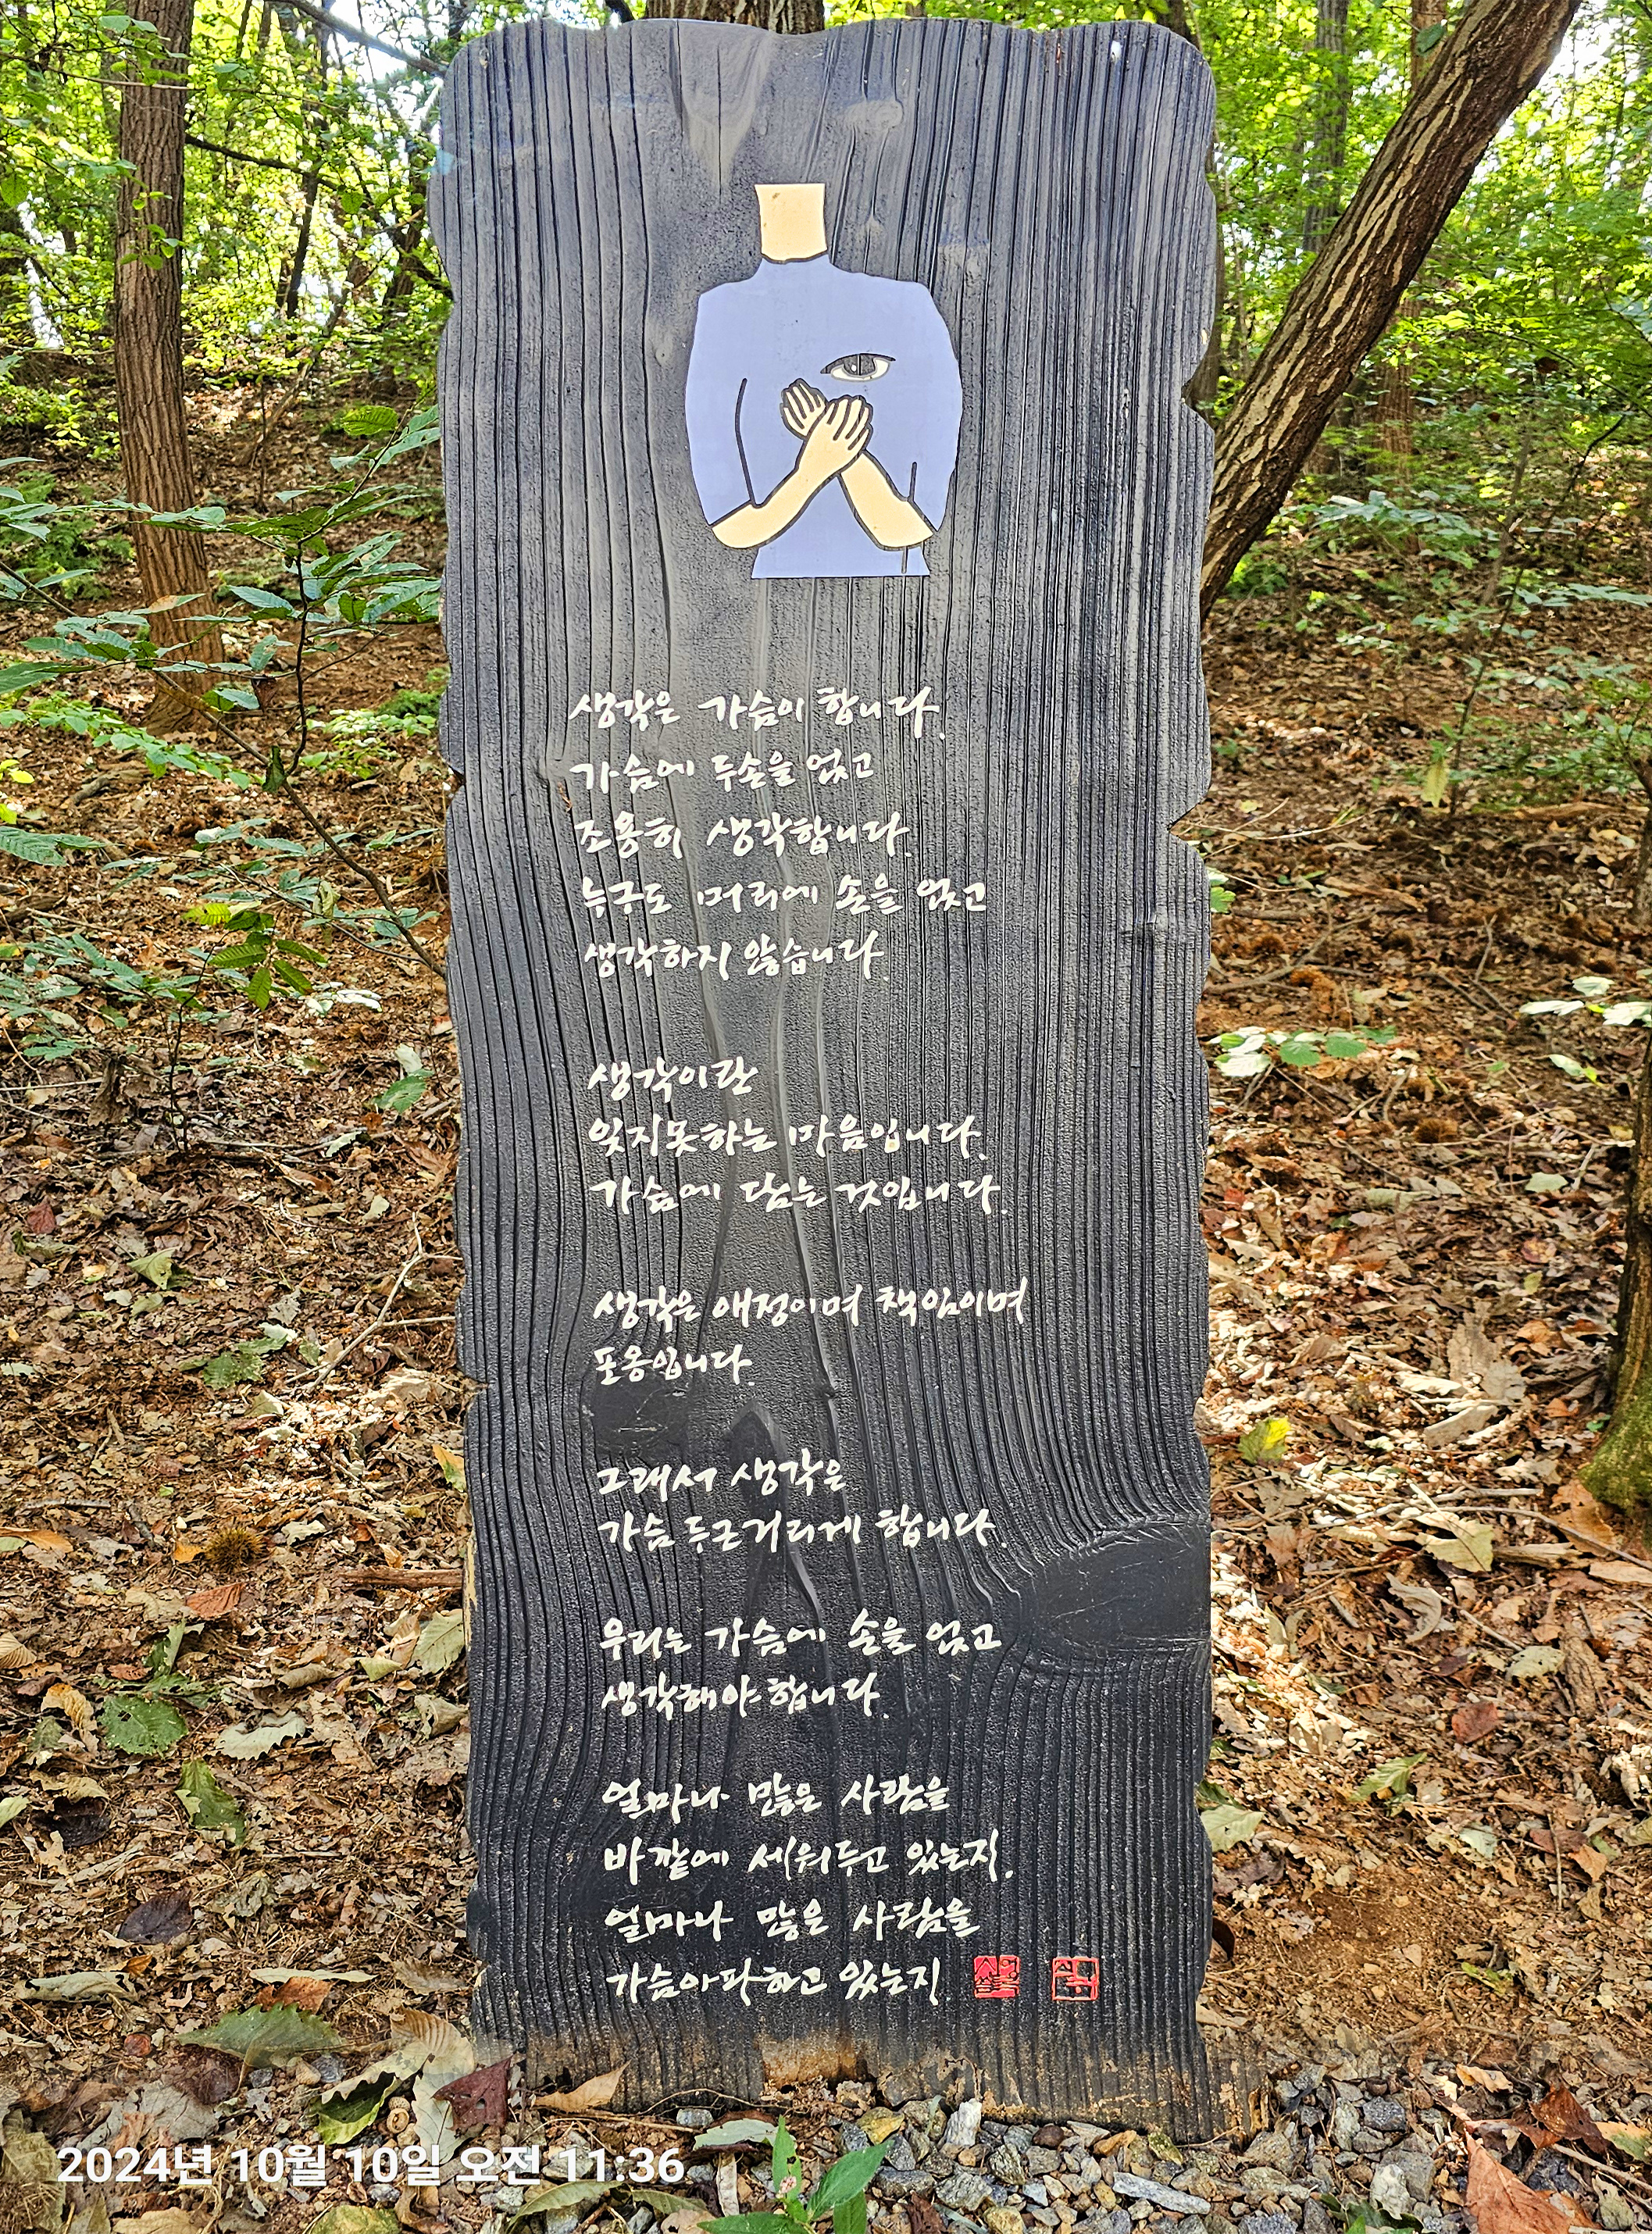 생각은 가슴이 합니다.
가슴에 두손을 얹고
조용히 생각합니다.
누구도 머리에 손을 얹고
생각하지 않습니다.
생각이란
잊지못하는 마음입니다.
가슴에 담는 것입니다.
생각은 애정이며 책임이며
포옹입니다.
그래서 생각은
가슴 두근거리게 합니다.
우리는 가슴에 손을 얹고
생각해야 합니다.
얼마나 많은 사람을
바깥에 세워두고 있는지.
얼마나 많은 사람을
가슴아파하고 있는지
2024년 10월 10일 오전 11:36